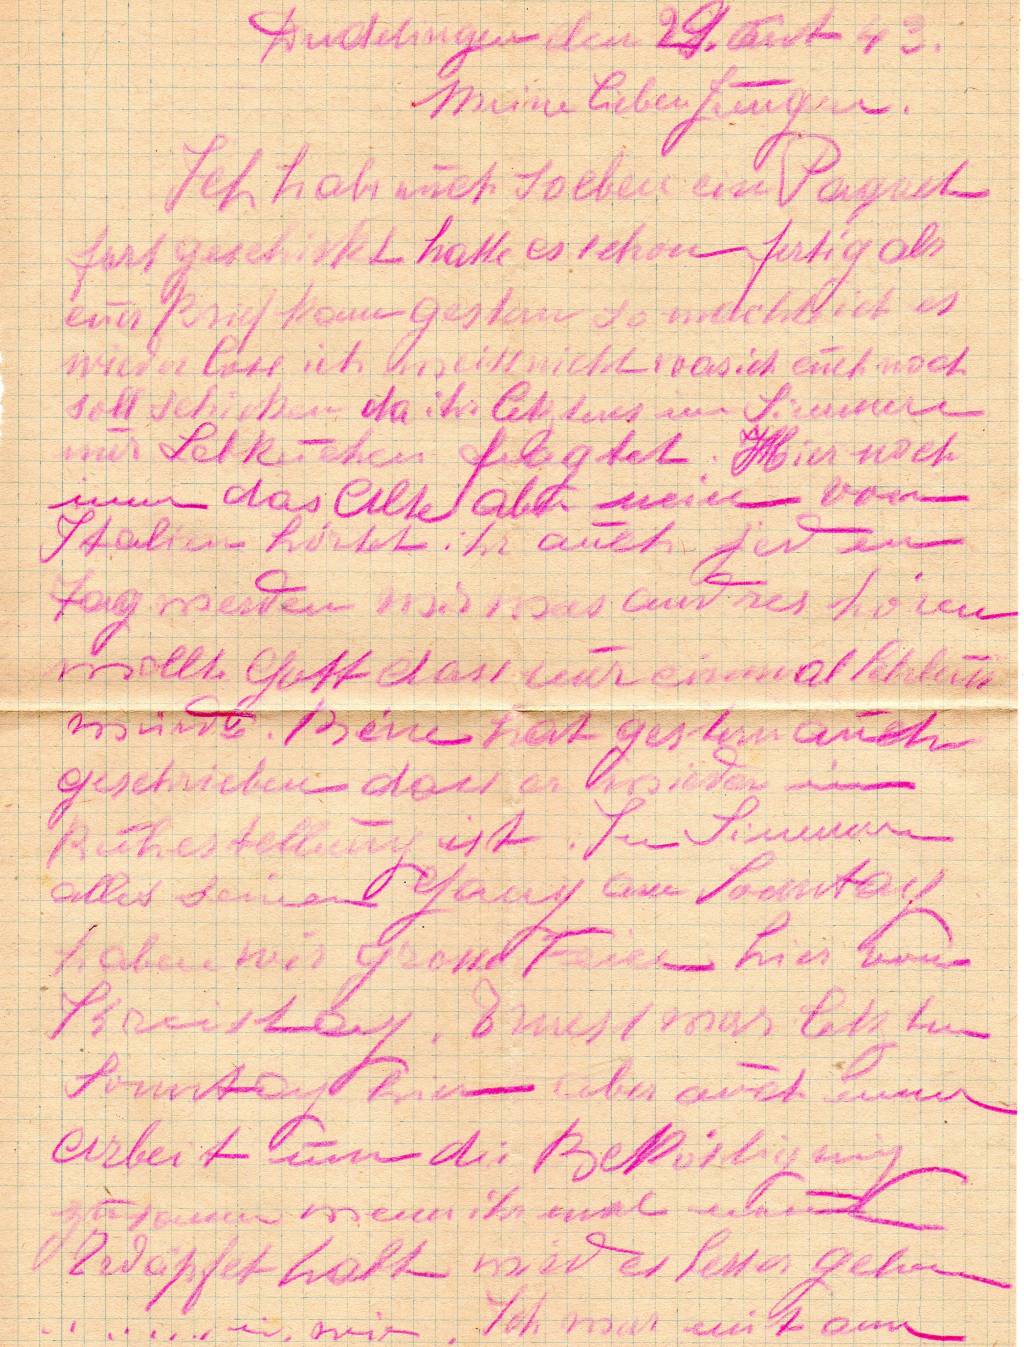 Düdelingen den 29. Aout 43.
Meine lieben Jungen.
Ich habe euch soeben ein Paquet
fort geschickt hatte es schon fertig als
euer Brief kam gestern so machte ich es
wieder lose ich weiss nicht was ich euch noch
soll schicken da ihr letztens um
nur Lebkuchen fragtet. Hier noch
immer das Alte aber nein von
Italien hörtet ihr auch jeden
Tag werden wir was andres hören
wollte Gott dass nur einmal
würde. hat gestern auch
geschrieben dass er wieder in
Ruhestellung ist. In
alles seinen Gang am Sonntag
haben wir grosse hier von
Kreistag. Ernest war letzten
Sonntag hier aber auch immer
Arbeit um die Beköstigung
zusammen wenn ihr mal
Erdäpfel habt wird es besser gehen
wir. Ich war mit am